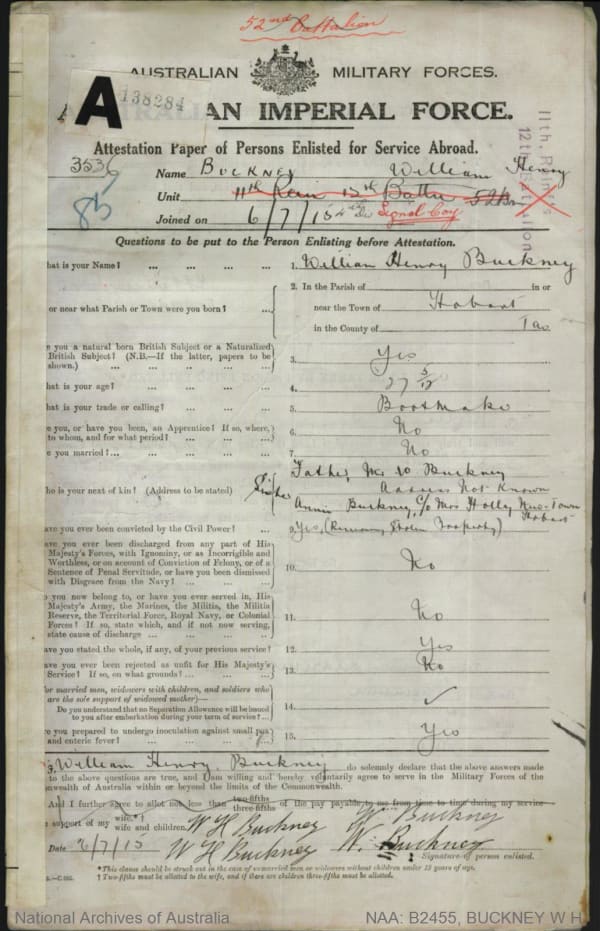 52nd Battalion
AUSTRALIAN MILITARY FORCES.
A 138284
AN IMPERIAL FORCE.
Attestation Paper of Persons Enlisted for Service Abroad.
3536
Name BUCKNEY William Henry
85
Unit 11th Rein 12th Battn 52 Bn
11th, Reinf's
12th Battalion
Joined on 6/7/15 Signal Coy
Questions to be put to the Person Enlisting before Attestation.
hat is your Name? ... ... ... ... 1. William Henry Buckney
2. In the Parish of in or
or near what Parish or Town were you born? ... near the Town of Hobart
in the County of Tas
e you a natural born British Subject or a Naturalized
British Subject? (N.B.—If the latter, papers to be
shown.) ... ... ... ... ... 3. Yes
hat is your age? ... ... ... ... 4. 27 5/12
hat is your trade or calling? ... ... ... 5. Bootmaker
e you, or have you been, an Apprentice? If so, where,
to whom, and for what period? ... ... ... 6. No
e you married?... ... ... ... ... 7. No
Father, Mr W Buckney
Address Not Known
ho is your next of kin? (Address to be stated) Sister
Annie Buckney, C/o Mrs Holly New-Town
Hobart
ave you ever been convicted by the Civil Power? ... 9. Yes, (Receiving Stolen Property)
ave you ever been discharged from any part of His
Majesty's Forces, with Ignominy, or as Incorrigible and
Worthless, or on account of Conviction of Felony, or of a
Sentence of Penal Servitude, or have you been dismissed
with Disgrace from the Navy? ... ... ... 10. No
o you now belong to, or have you ever served in, His
Majesty's Army, the Marines, the Militia, the Militia
Reserve, the Territorial Force, Royal Navy, or Colonial
Forces? If so, state which, and if not now serving,
state cause of discharge ... ... ... ... 11. No
ave you stated the whole, if any, of your previous service? 12. Yes
ave you ever been rejected as unfit for His Majesty's
Service? If so, on what grounds? ... ... ... 13. No
or married men, widowers with children, and soldiers who
are the sole support of widowed mother)—
Do you understand that no Separation Allowance will be issued
to you after embarkation during your term of service? ... 14. ✓
re you prepared to undergo inoculation against small pox
and enteric fever? ... ... ... ... 15. Yes
I, William Henry Buckney do solemnly declare that the above answers made
to the above questions are true, and I am willing and hereby voluntarily agree to serve in the Military Forces of the
nwealth of Australia within or beyond the limits of the Commonwealth.
And I further agree to allot not less than two-fifths of the pay payable to me from time to time during my service
support of my wife.*†
wife and children. W H Buckney W. Buckney
Date 6/7/15 W H Buckney W. Buckney
Signature of person enlisted.
* This clause should be struck out in the case of unmarried men or widowers without children under 18 years of age.
† Two-fifths must be allotted to the wife, and if there are children three-fifths must be allotted.
National Archives of Australia NAA: B2455, BUCKNEY W H